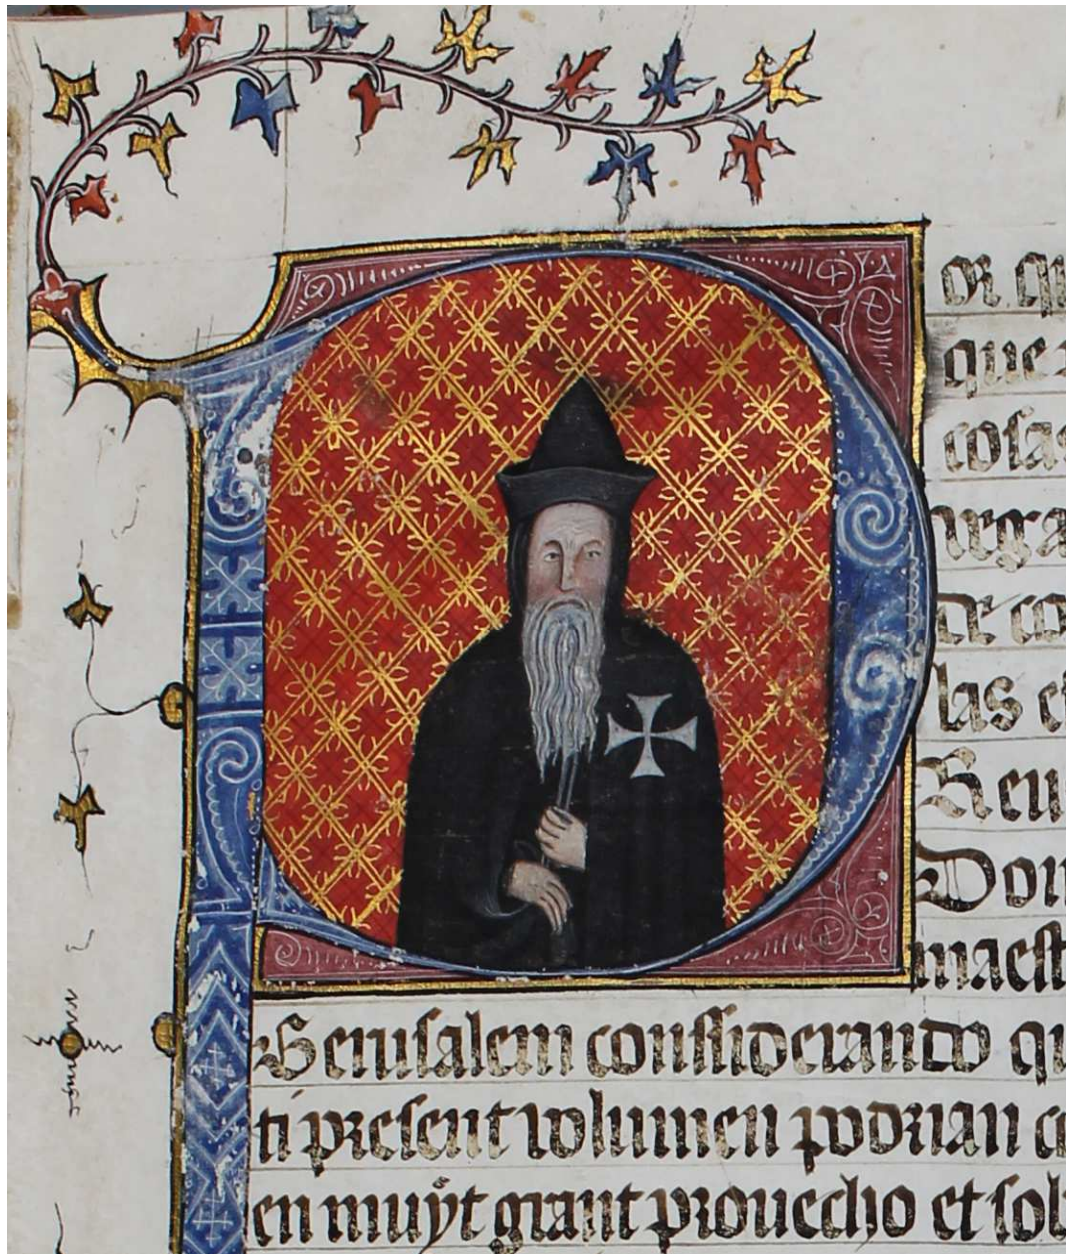 or q
que
cosas
urga
de co
las c
Reu
Don
maest
Gerusalem conssiderando q
ti present volumen podrian
en muyt grant prouecho et sol